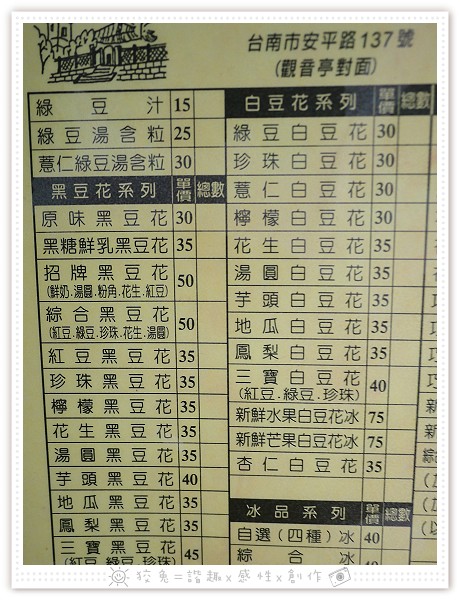 台南市安平路137號
(觀音亭對面)
綠豆汁 15
綠豆湯含粒 25
薏仁綠豆湯含粒 30
黑豆花系列 單價 總數
原味黑豆花 30
黑糖鮮乳黑豆花 35
招牌黑豆花 50
(鮮奶.湯圓.粉角.花生.紅豆)
綜合黑豆花 50
(紅豆.綠豆.珍珠.花生.湯圓)
紅豆黑豆花 35
珍珠黑豆花 35
檸檬黑豆花 35
花生黑豆花 35
湯圓黑豆花 35
芋頭黑豆花 40
地瓜黑豆花 35
鳳梨黑豆花 35
三寶黑豆花 45
(紅豆.綠豆.珍珠)
白豆花系列 單價 總數
綠豆白豆花 30
珍珠白豆花 30
薏仁白豆花 30
檸檬白豆花 30
花生白豆花 35
湯圓白豆花 35
芋頭白豆花 35
地瓜白豆花 35
鳳梨白豆花 35
三寶白豆花 40
(紅豆.綠豆.珍珠)
新鮮水果白豆花冰 75
新鮮芒果白豆花冰 75
杏仁白豆花 35
冰品系列 單價 總數
自選(四種)冰 40
綜合冰 40
狡兔=諧趣x感性x創作